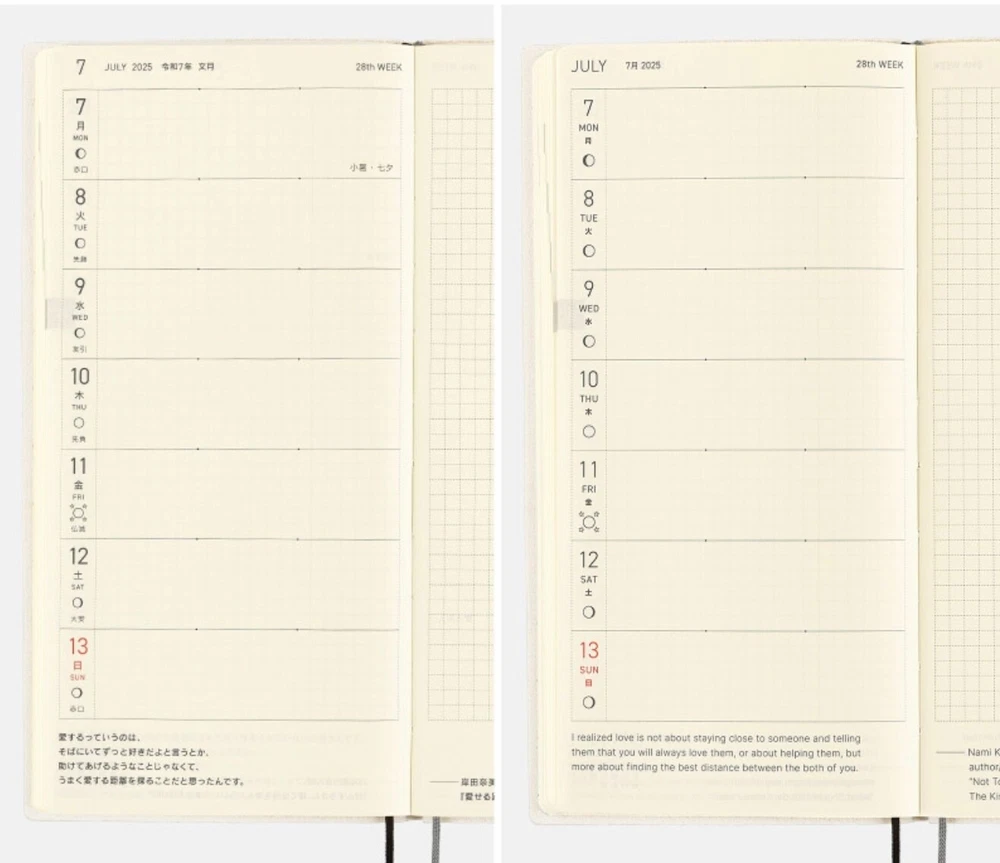 7 JULY 2025 令和7年 文月 28th WEEK
7
月
MON
赤口
小暑・七夕
8
火
TUE
先勝
9
水
WED
友引
10
木
THU
先負
11
金
FRI
仏滅
12
土
SAT
大安
13
日
SUN
赤口
愛するっていうのは、
そばにいてずっと好きだよと言うとか、
助けてあげるようなことじゃなくて、
うまく愛する距離を探ることだと思ったんです。
岸田奈美
JULY 7月 2025 28th WEEK
7
MON
月
8
TUE
火
9
WED
水
10
THU
木
11
FRI
金
12
SAT
土
13
SUN
日
I realized love is not about staying close to someone and telling
them that you will always love them, or about helping them, but
more about finding the best distance between the both of you.
Nami K
author/
"Not To
The Ki